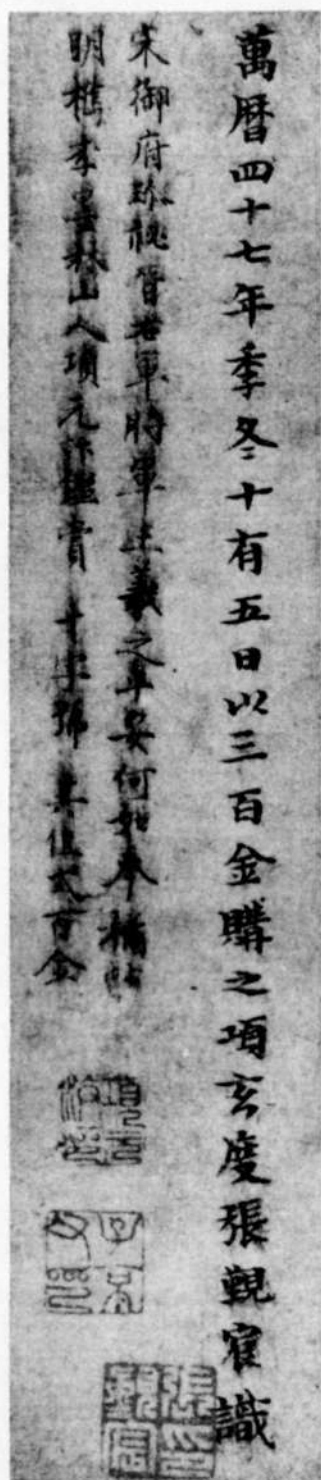 萬曆四十七年季冬十有五日以三百金購之項玄度張覲宸識
宋御府珍祕晉右軍將軍王羲之平安何如奉橘帖
明檇李墨林山人項元汴鑑賞 十字號 其值弍百金
張覲宸印